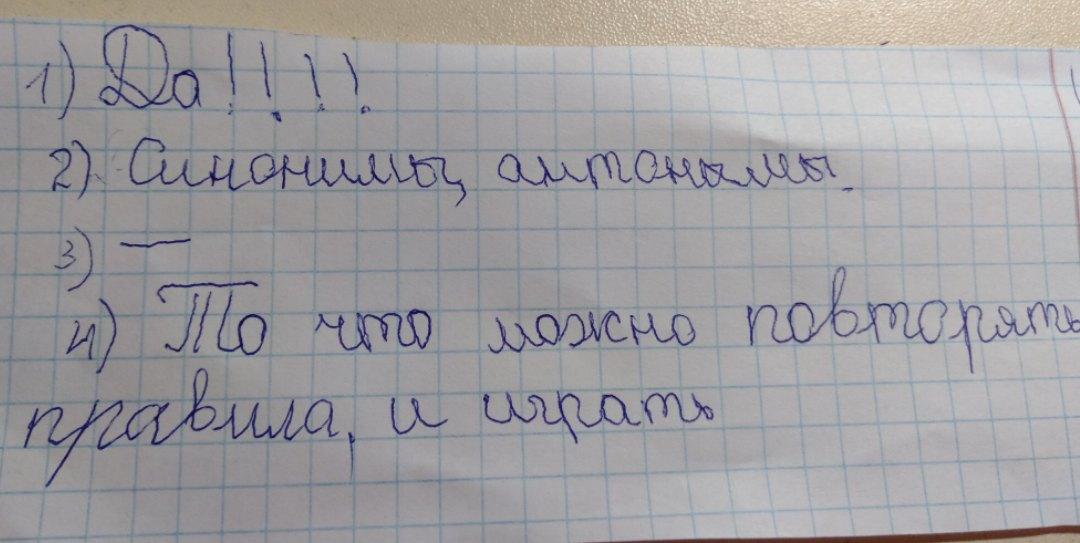 1) Да!!!!
2) Синонимы, антонымы.
3) —
4) То что можно повторять
правила, и играть